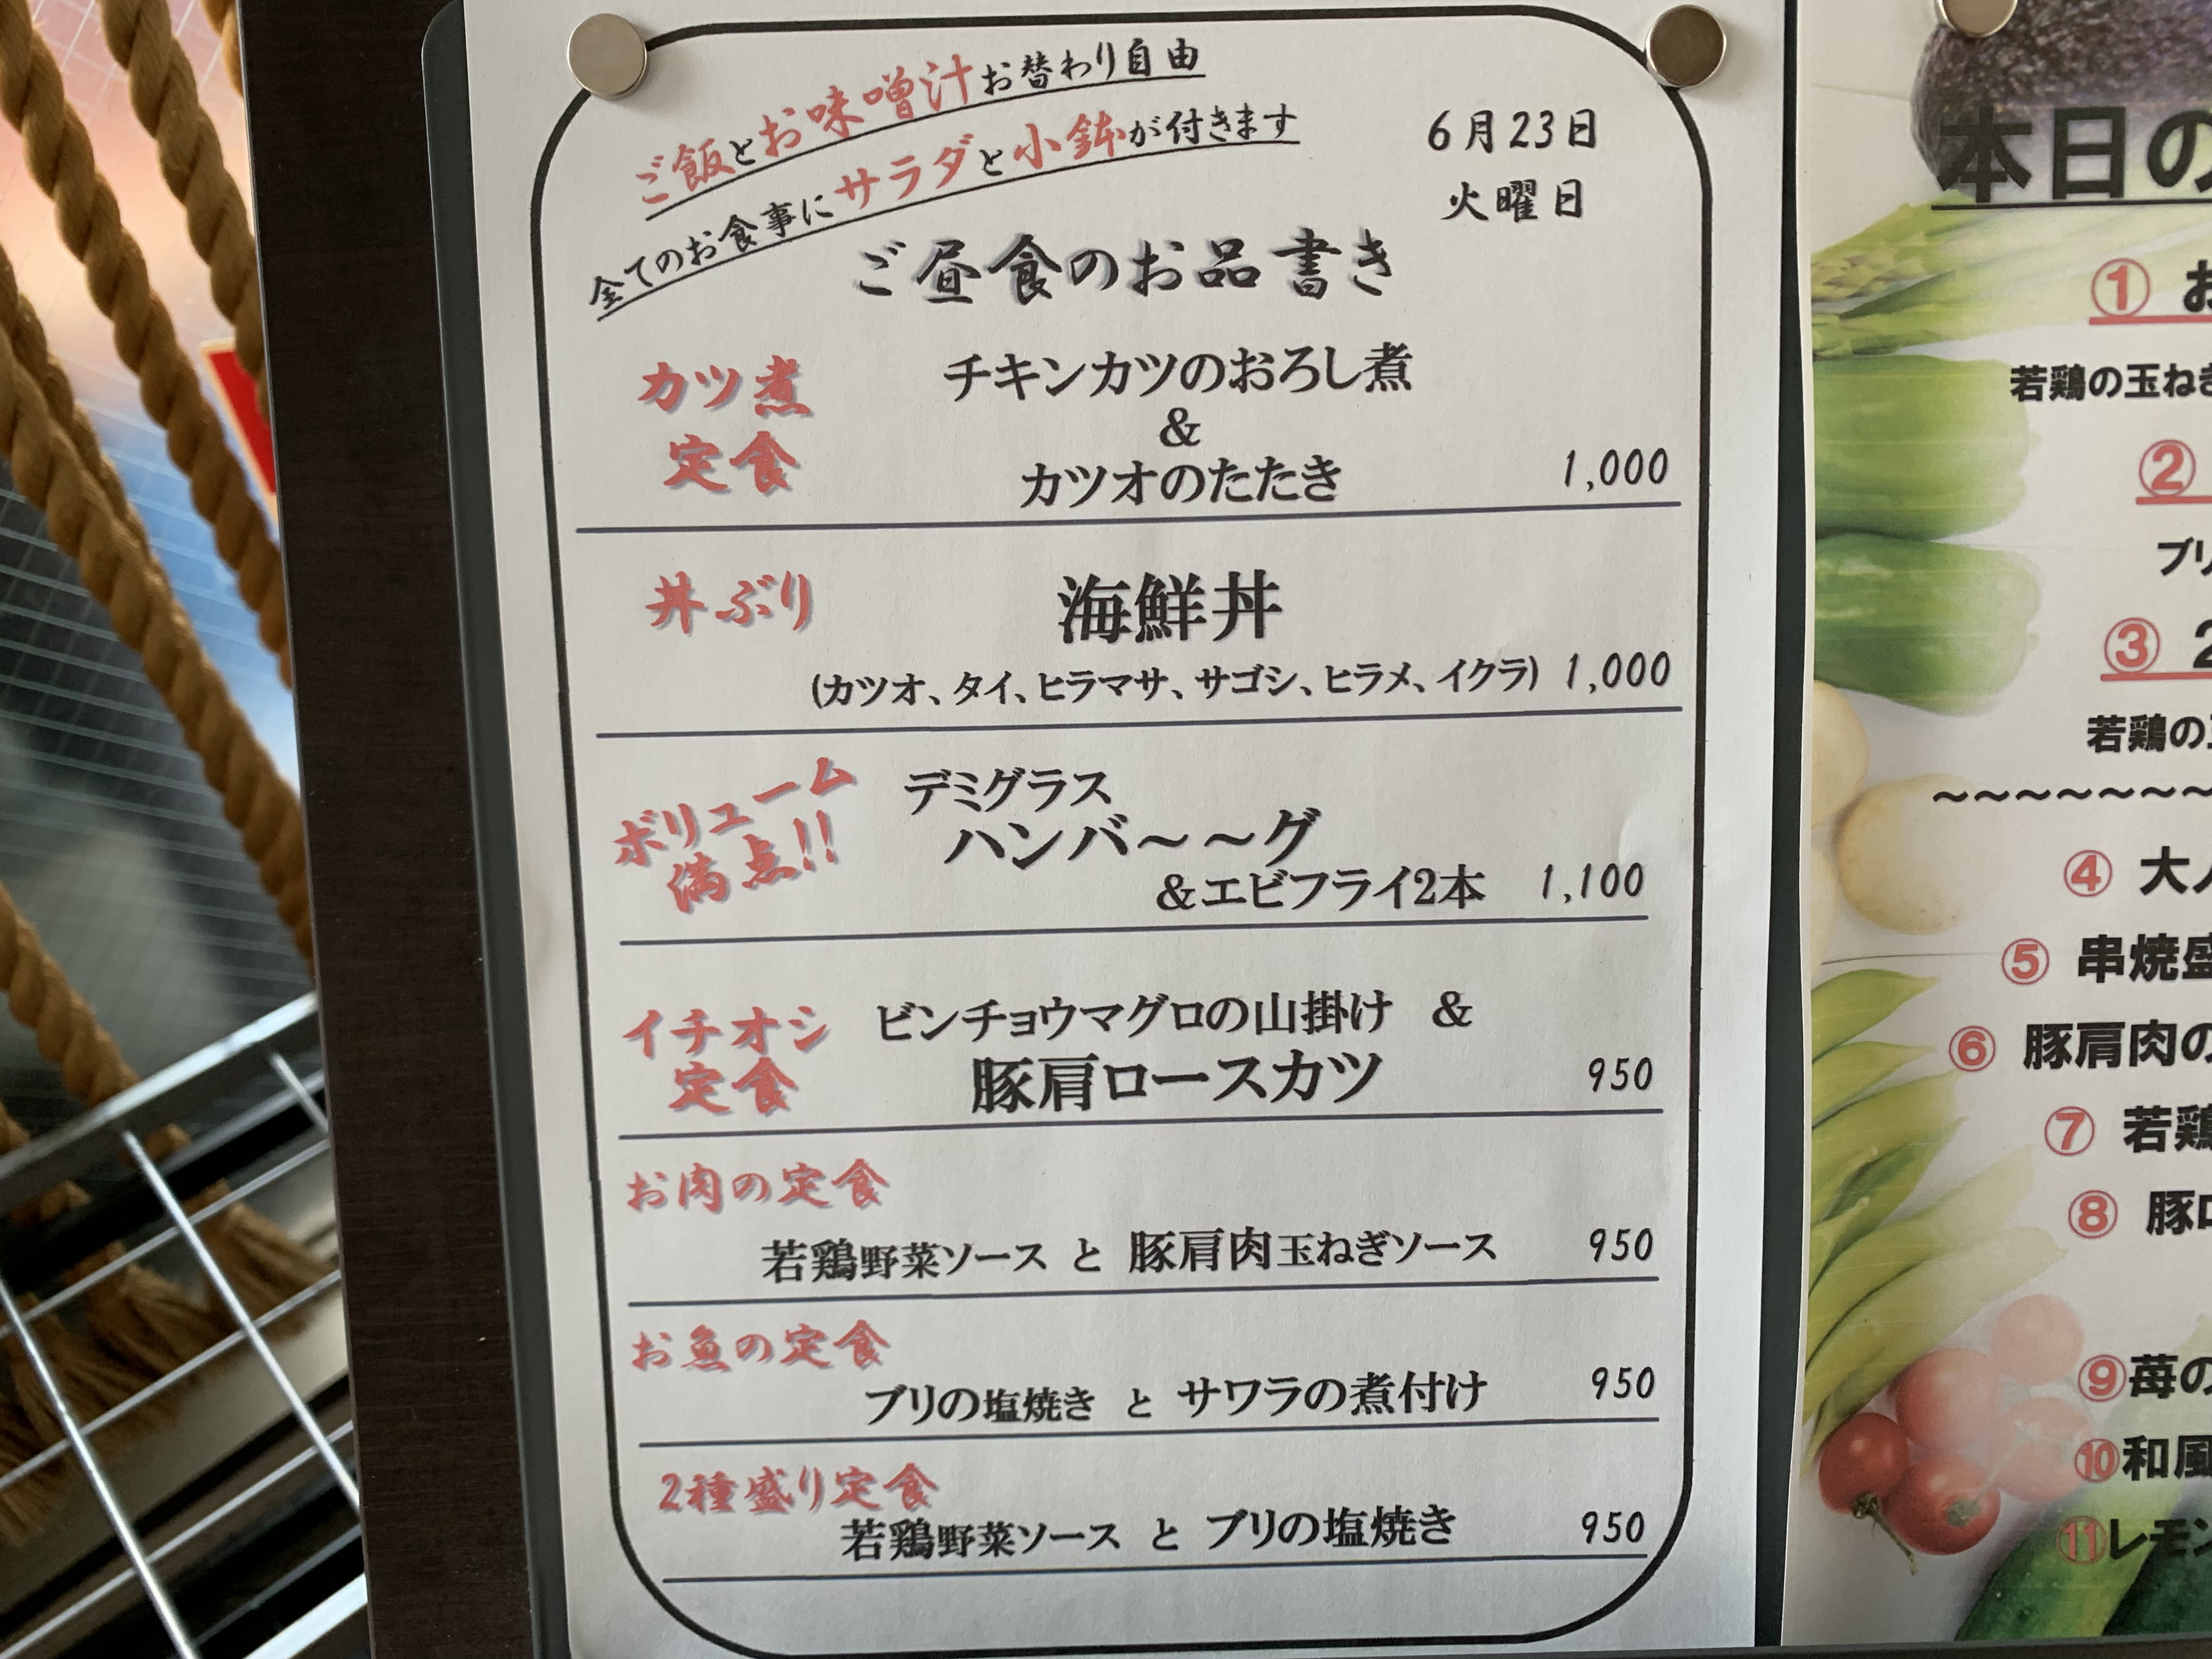 ご飯とお味噌汁お替わり自由
全てのお食事にサラダと小鉢が付きます
6月23日
火曜日
ご昼食のお品書き
カツ煮
定食
チキンカツのおろし煮
&
カツオのたたき 1,000
丼ぶり 海鮮丼
(カツオ、タイ、ヒラマサ、サゴシ、ヒラメ、イクラ) 1,000
ボリューム
満点!!
デミグラス
ハンバ～～グ
&エビフライ2本 1,100
イチオシ
定食
ビンチョウマグロの山掛け &
豚肩ロースカツ 950
お肉の定食
若鶏野菜ソース と 豚肩肉玉ねぎソース 950
お魚の定食
ブリの塩焼き と サワラの煮付け 950
2種盛り定食
若鶏野菜ソース と ブリの塩焼き 950
本日の
① お
若鶏の玉ねぎ
②
ブリ
③ 2
若鶏の
～～～～～～～
④ 大
⑤ 串焼盛
⑥ 豚肩肉の
⑦ 若鶏
⑧ 豚ロ
⑨苺の
⑩和風
⑪レモン